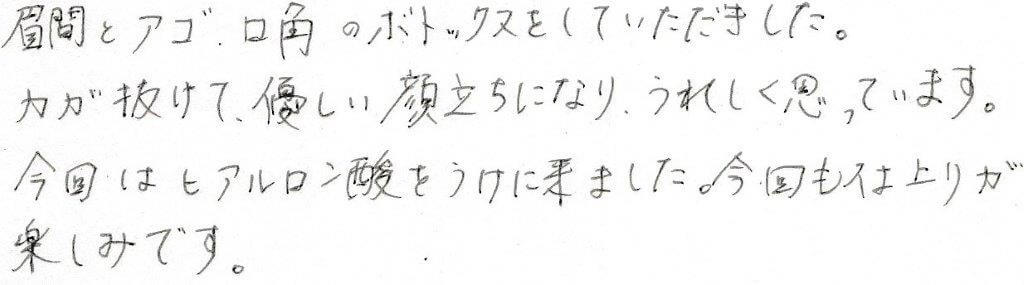 眉間とアゴ、口角のボトックスをしていただきました。
力が抜けて、優しい顔立ちになり、うれしく思っています。
今回はヒアルロン酸をうけに来ました。今回も仕上りが
楽しみです。